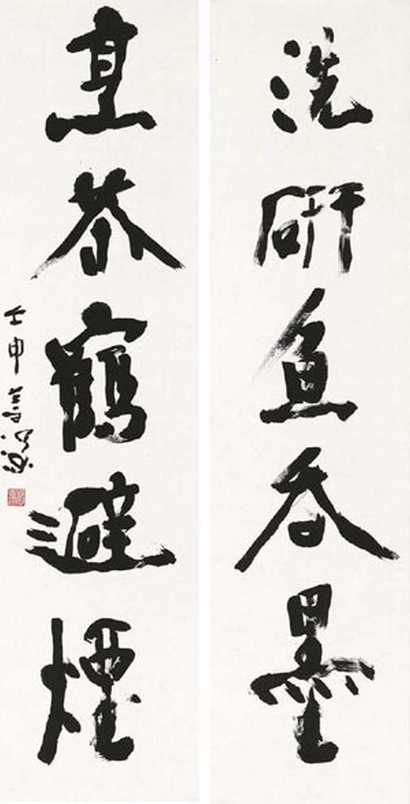 洗研魚吞墨
烹茶鶴避煙
壬申